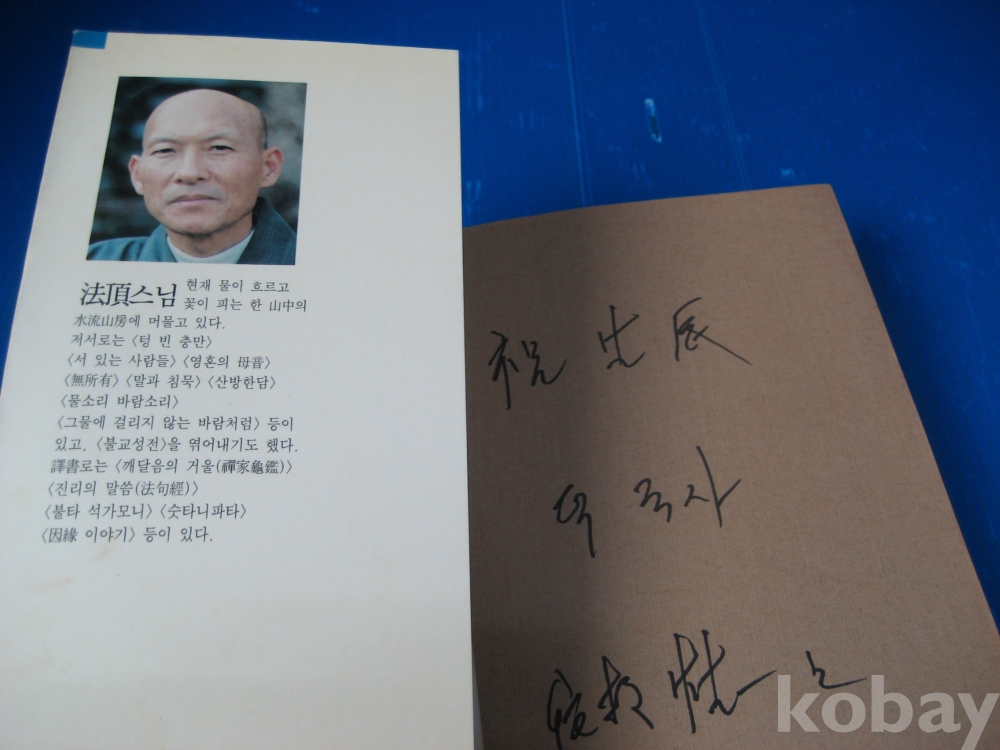 法頂스님 현재 물이 흐르고
꽃이 피는 한 山中의
水流山房에 머물고 있다.
저서로는 〈텅 빈 충만〉
〈서 있는 사람들〉 〈영혼의 母音〉
〈無所有〉 〈말과 침묵〉 〈산방한담〉
〈물소리 바람소리〉
〈그물에 걸리지 않는 바람처럼〉 등이
있고, 〈불교성전〉을 엮어내기도 했다.
譯書로는 〈깨달음의 거울(禪家龜鑑)〉
〈진리의 말씀(法句經)〉
〈불타 석가모니〉 〈숫타니파타〉
〈因緣 이야기〉 등이 있다.
祝 生辰
kobay